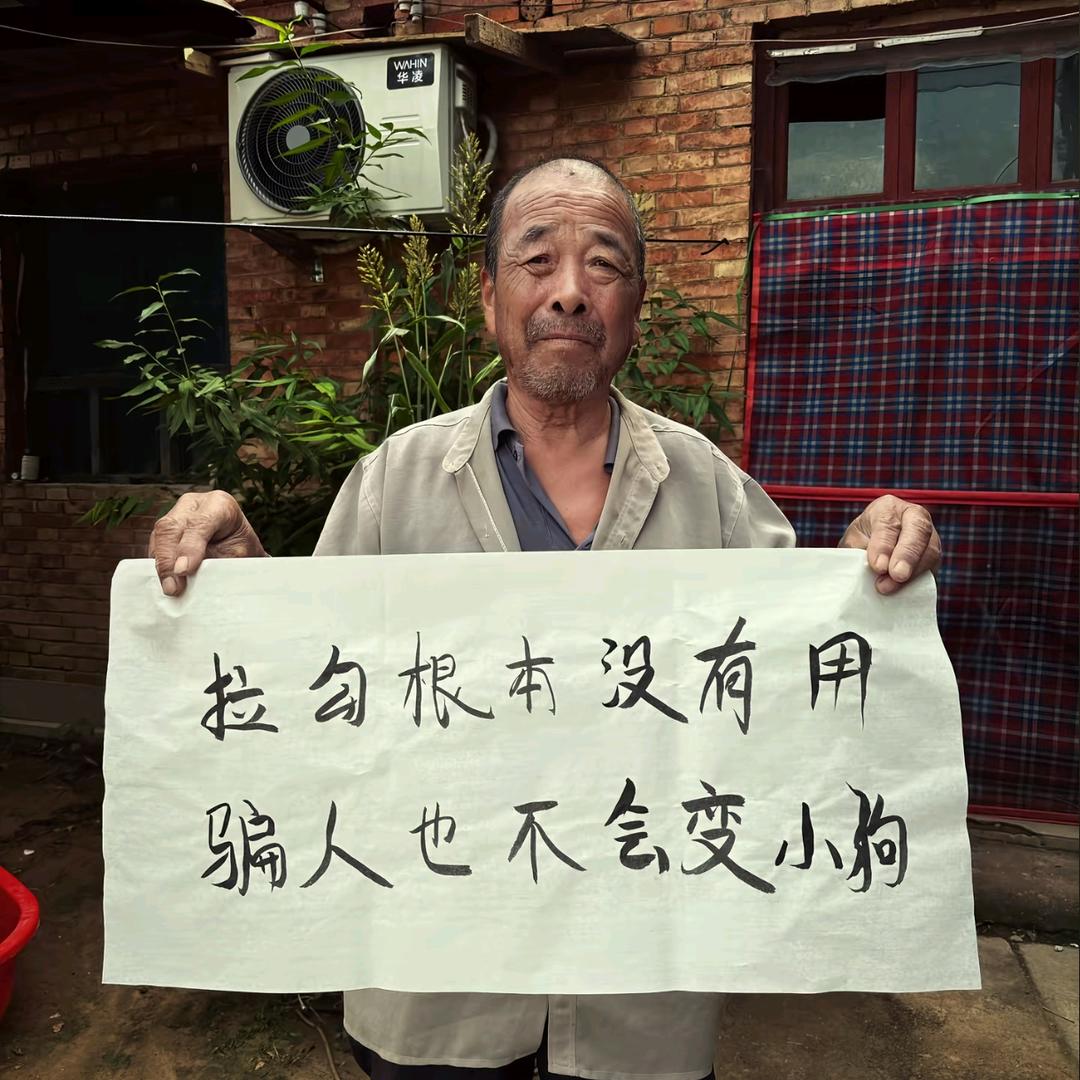 WAHIN
华凌
拉勾根本没有用
骗人也不会变小狗